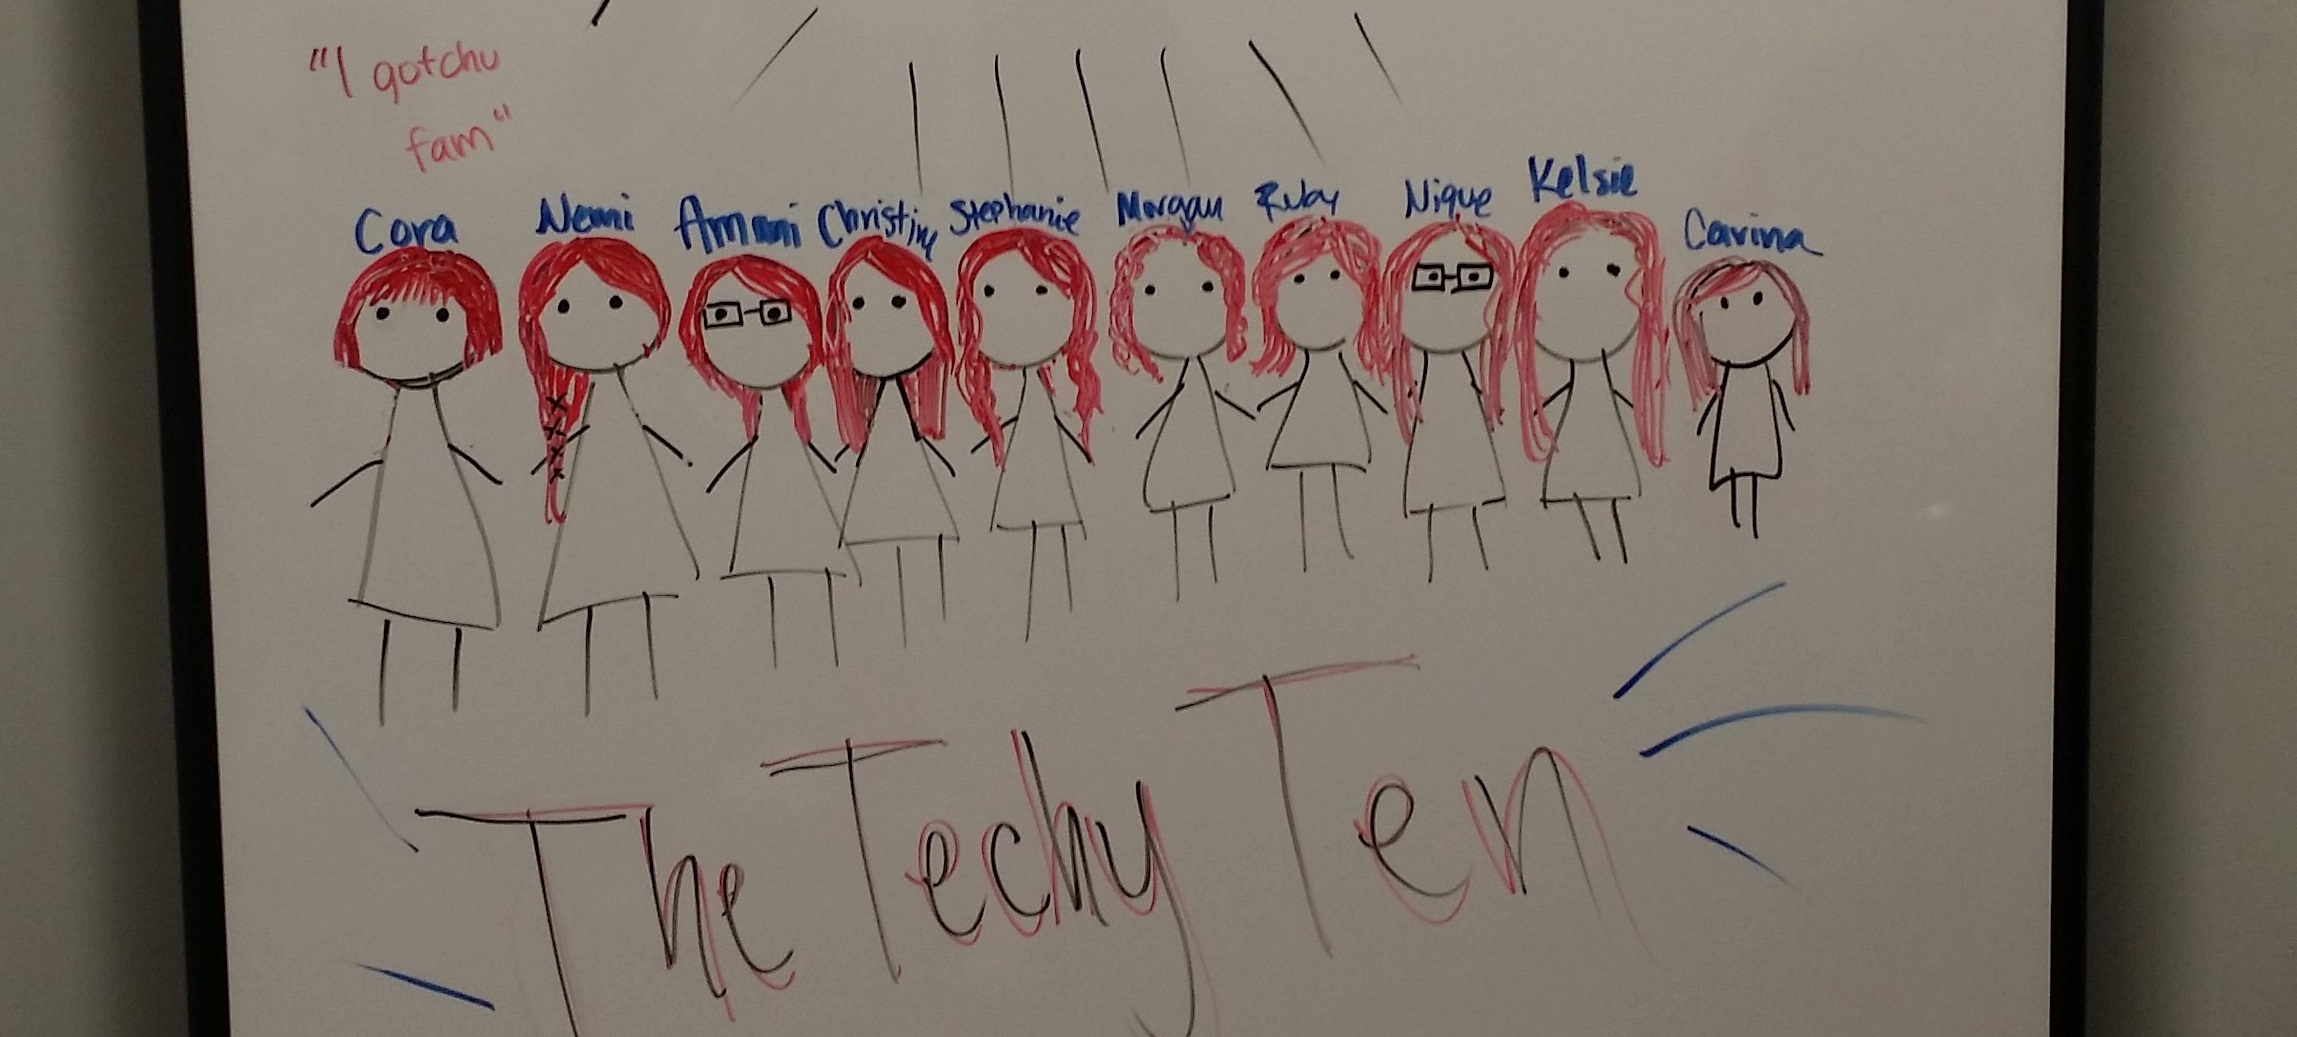 "I gotchu
fam"
Cora Nemi Ammi Christine Stephanie Morgan Ruby Nique Kelsie Carina
The Techy Ten